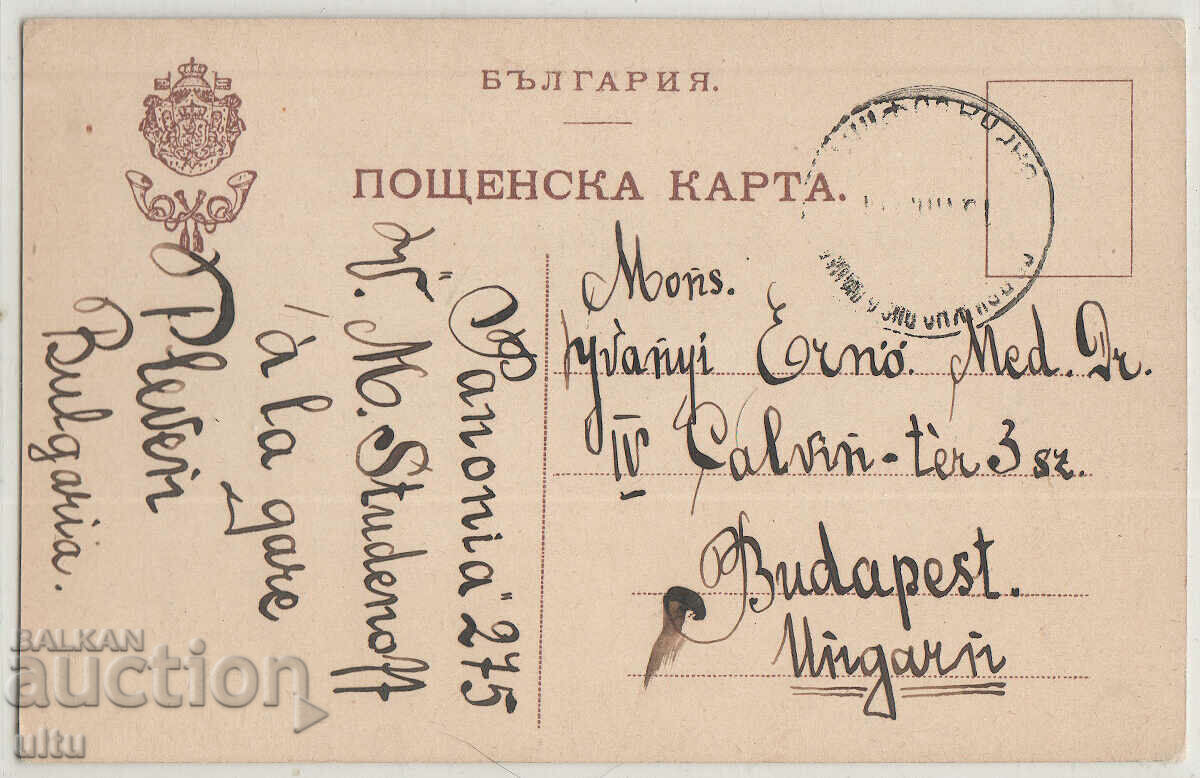 БЪЛГАРИЯ.
ПОЩЕНСКА КАРТА.
"Panonia" 275
V. M. Studenoff
/à la gare
Pleven
Bulgaria.
Mons.
Yványi Ernö. Med. Dr.
IV Calvin-tèr 3 sz.
Budapest.
Ungarn
BALKAN
auction
ultu